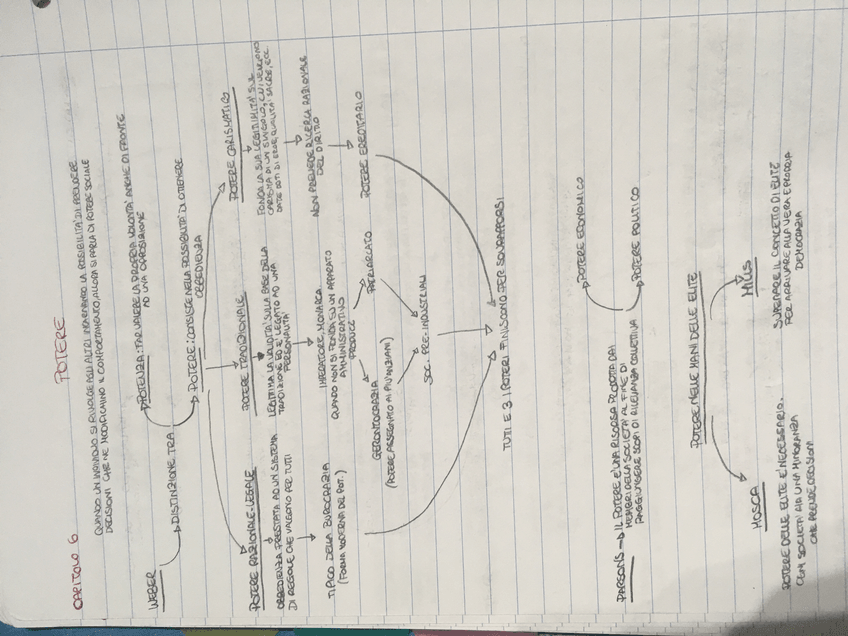 CAPITOLO 6
POTERE
QUANDO UN INDIVIDUO SI RIVOLGE AGLI ALTRI INFLUENZANDO LA POSSIBILITA' DI PRENDERE
DECISIONI CHE NE MODIFICHINO IL COMPORTAMENTO, ALLORA SI PARLA DI POTERE SOCIALE
WEBER
DISTINZIONE TRA
POTENZA: FAR VALERE LA PROPRIA VOLONTA' ANCHE DI FRONTE
AD UNA OPPOSIZIONE
POTERE: CONSISTE NELLA POSSIBILITA' DI OTTENERE
OBBEDIENZA
POTERE RAZIONALE-LEGALE
OBBEDIENZA PRESTATA AD UN SISTEMA
DI REGOLE CHE VALGONO PER TUTTI
TIPICO DELLA BUROCRAZIA
(FORMA MODERNA DEL POT.)
POTERE TRADIZIONALE
LEGITTIMA LA VALIDITA' SULLA BASE DELLA
TRADIZIONE ED E' LEGATO AD UNA
PERSONALITA'
IMPERATORE, MONARCA
QUANDO NON SI FONDA SU UN APPARATO
AMMINISTRATIVO
PRODUCE
GERONTOCRAZIA
(POTERE ASSEGNATO AI PIU' ANZIANI)
PATRIARCATO
SOC. PRE-INDUSTRIALI
POTERE CARISMATICO
FONDA LA SUA LEGITTIMITA' SUL
CARISMA DI UN SINGOLO, CUI VENGONO
DATE DOTI DI EROE, QUALITA' SACRE, ECC.
NON PREVEDE RICERCA RAZIONALE
DEL DIRITTO
POTERE EREDITARIO
TUTTI E 3 I POTERI FINISCONO PER SOVRAPPORSI
PARSONS → IL POTERE E' UNA RISORSA PRODOTTA DAI
MEMBRI DELLA SOCIETA' AL FINE DI
RAGGIUNGERE SCOPI DI RILEVANZA COLLETTIVA
POTERE ECONOMICO
POTERE POLITICO
POTERE NELLE MANI DELLE ELITE
MOSCA
POTERE DELLE ELITE E' NECESSARIO.
OGNI SOCIETA' HA UNA MINORANZA
CHE PRENDE DECISIONI
MILLS
SUPERARE IL CONCETTO DI ELITE
PER ARRIVARE ALLA VERA E PROPRIA
DEMOCRAZIA